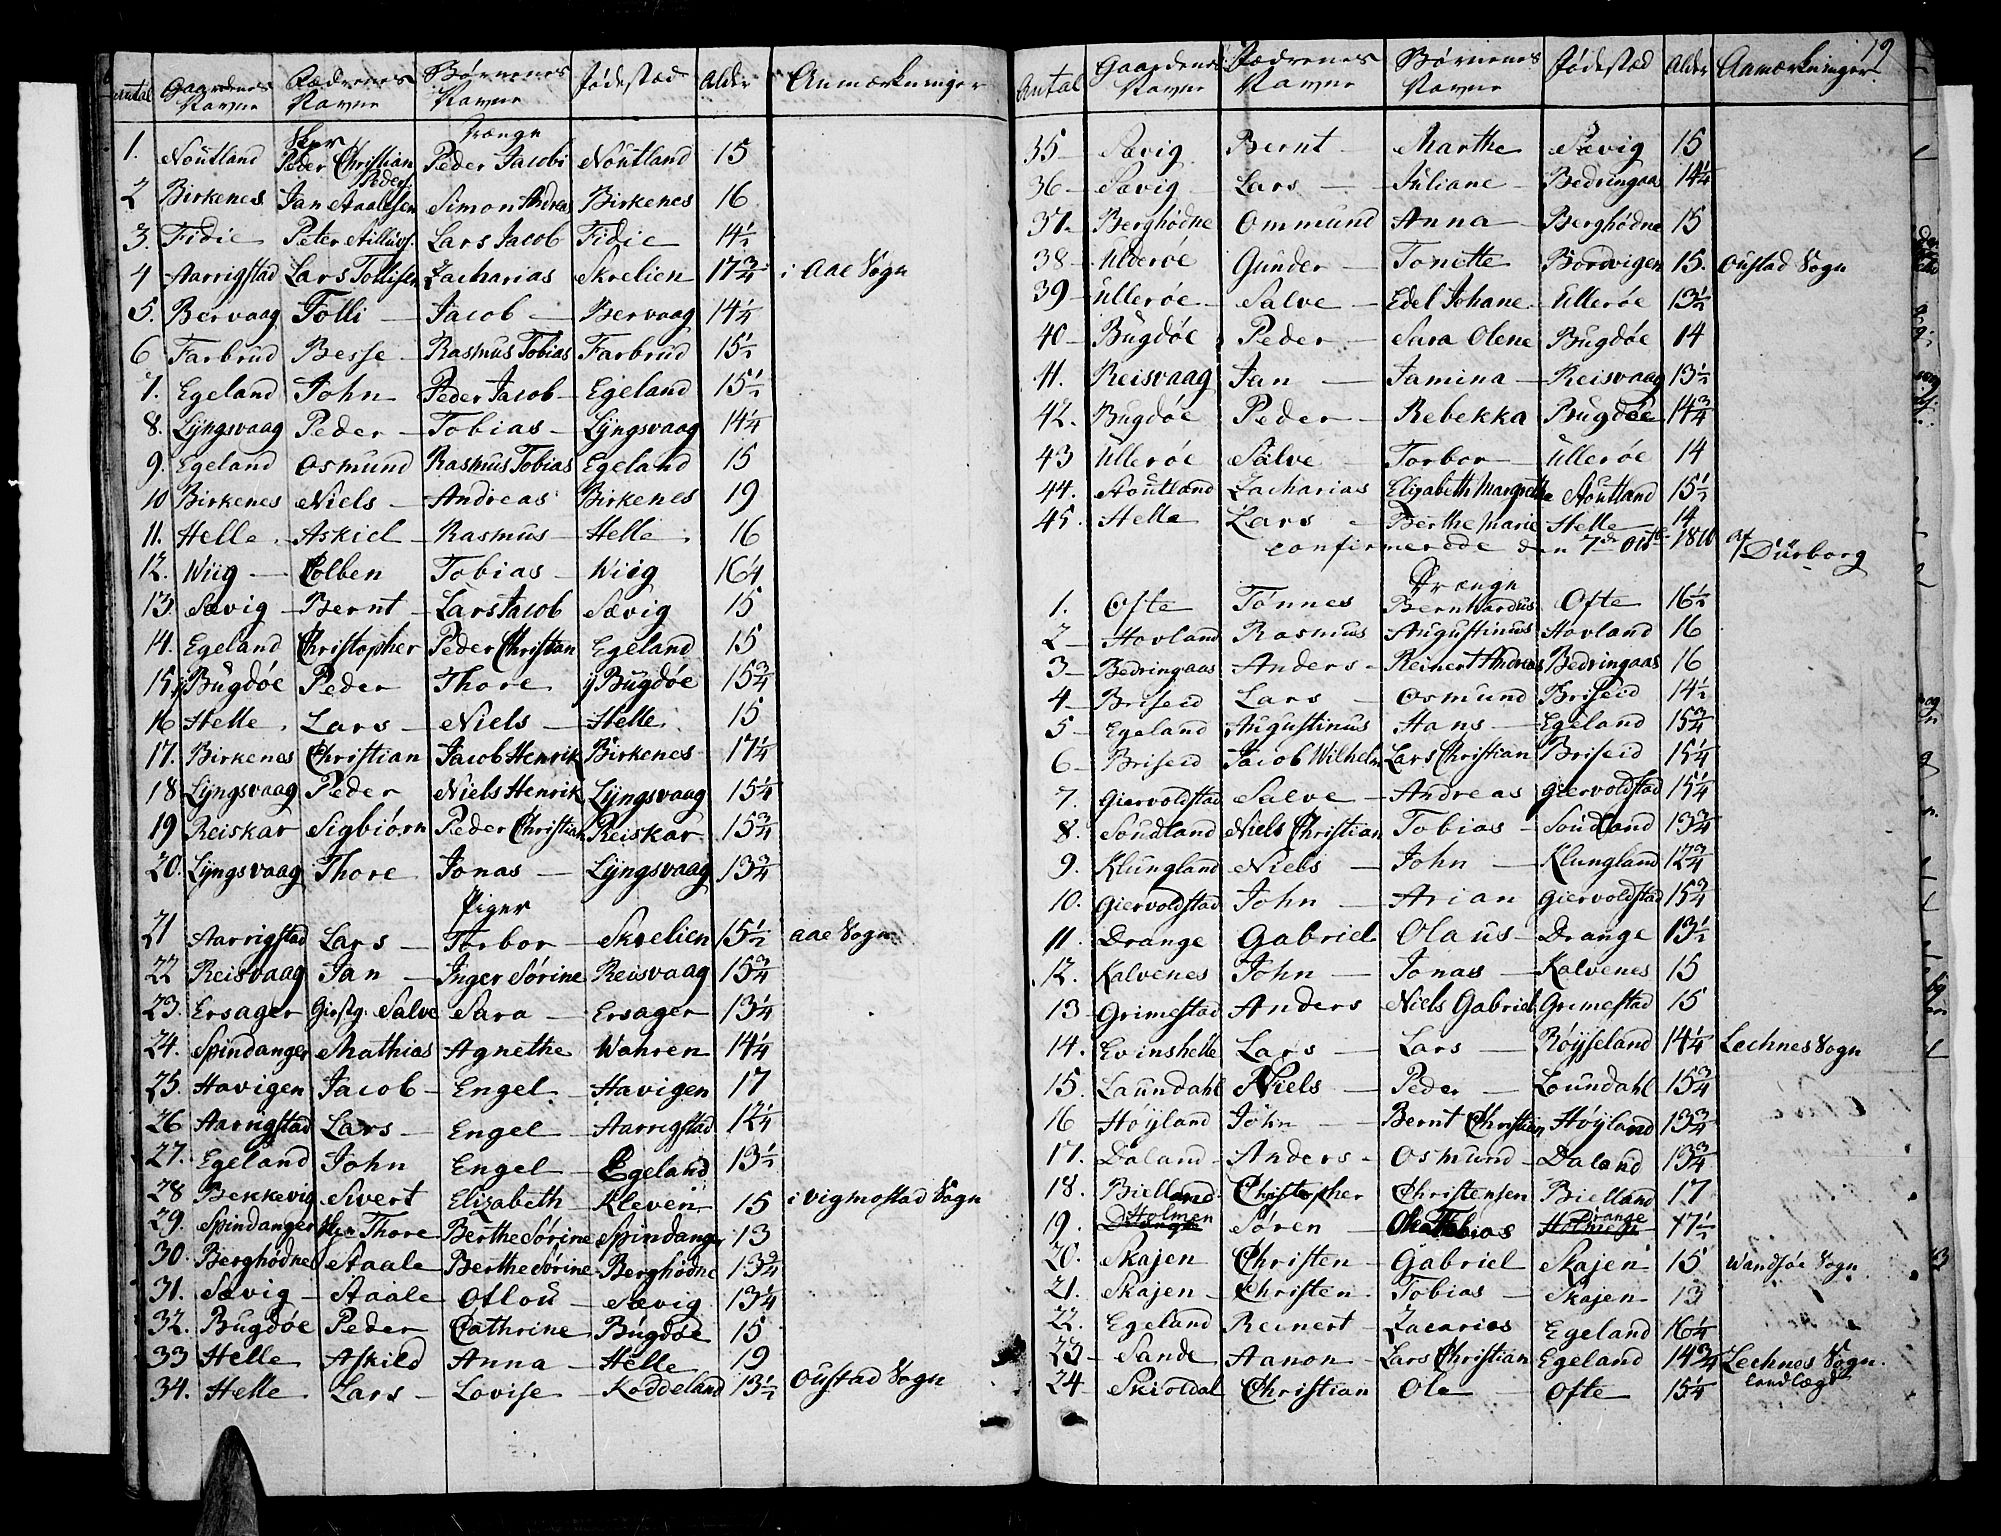 Antal Gaardenes Navne Fædrenes Navne Børnenes Navne Fødested Alder Anmærkninger
Drænge
1. Noutland Peder Christian Peders. Peder Jacob Noutland 15
2 Birkenes Jan Staalesen Simon Andreas Birkenes 16
3. Fidie Peter Lars Jacob Fidie 14½
4 Aarrigstad Lars Tollisen Zacharias Skrelien 17¾ i Aae Sogn
5. Bervaag Tolli Jacob Bervaag 14¼
6 Farbrud Besse Rasmus Tobias Farbrud 15½
7. Egeland John Peder Jacob Egeland 15½
8. Lÿngsvaag Peder Tobias Lÿngsvaag 14¼
9. Egeland Osmund Rasmus Tobias Egeland 15
10 Birkenes Niels Andreas Birkenes 19
11. Helle Askiel Rasmus Helle 16
12. Wiig Colben Tobias Wiig 16¼
13. Sævig Bernt Lars Jacob Sævig 15
14. Egeland Christopher Peder Christian Egeland 15
15 Bugdøe Peder Thore ÿ Bugdøe 15¾
16 Helle Lars Niels Helle 15
17. Birkenes Christian Jacob Henrik Birkenes 17¼
18 Lÿngsvaag Peder Niels Henrik Lÿngsvaag 15¼
19 Reiskar Sigbiørn Peder Christian Reiskar 15¾
20. Lÿngsvaag Thore Jonas Lÿngsvaag 13¾
Piger
21 Aarrigstad Lars Torbor Skrelien 15½ Aae Sogn
22 Reisvaag Jan Inger Sørine Reisvaag 15¾
23. Ersager Salve Sara Ersager 13¼
24. Spindanger Mathias Agnethe Wahren 14¼
25. Havigen Jacob Engel Havigen 17
26 Aarrigstad Lars Engel Aarrigstad 12¼
27. Egeland John Engel Egeland 13½
28 Bekkevig Sivert Elizabeth Kleven 15 i Vigmostad Sogn
29. Spindanger Thore Berthe Sørine Spindanger 13
30. Berghødne Staale Berthe Sørine Berghødne 13¾
31. Sævig Staale Otlou Sævig 13¼
32. Bugdøe Peder Cathrine Bugdøe 15
33 Helle Askild Anna Helle 19
34. Helle Lars Lovise Koddeland 13½ Oustad Sogn
19
Antal Gaardenes Navne Fædrenes Navne Børnenes Navne Fødested Alder Anmærkninger
35 Sævig Bernt Marthe Sævig 15
36 Sævig Lars Juliane Bedringaas 14¼
37 Berghødne Ommund Anna Berghødne 15
38 Ulderøe Gunder Tonette Bordvigen 15. Oustad Sogn
39 Ullerøe Salve Edel Johane Ullerøe 13½
40 Bugdøe Peder Sara Olene Bugdøe 14
41. Reisvaag Jan Jamina Reisvaag 13½
42. Bugdøe Peder Rebekka Bugdøe 14¾
43 Ullerøe Salve Torbor Ullerøe 14
44. Stoutland Zacharias Elizabeth Margretha Stoutland 15½
45. Helle Lars Berthe Marie Helle 14
confirmerede den 7de 1810 af Dürborg
Drænge
1. Ofte Tønnes Bernhardus Ofte 16½
2 Hovland Rasmus Augustinus Hovland 16
3 Bedringaas Anders Reinert Andreas Bedringaas 16
4 Briseid Lars Osmund Briseid 14½
5 Egeland Augustinus Hans Egeland 15¾
6 Briseid Jacob Wilhelm Lars Christian Briseid 15¼
7. Giervoldstad Salve Andreas Giervoldstad 15¼
8. Soudland Niels Christian Tobias Soudland 13¾
9. Klungland Niels John Klungland 12¾
10. Giervoldstad John Arian Giervoldstad 15¾
11. Drange Gabriel Olaus Drange 13½
12. Kalvenes John Jonas Kalvenes 15
13 Grimestad Anders Niels Gabriel Grimestad 15
14. Evinshelle Lars Lars Røÿseland 14¼ Lechnes Sogn
15. Laundahl Niels Peder Loundahl 15¾
16 Høÿland John Bernt Christian Høÿland 13¾
17. Daland Anders Osmund Daland 13¾
18. Bielland Christopher Christensen Bielland 17
19. Holmen Søren Tobias Drange 17½
20. Skajen Christen Gabriel Skajen 15 Wandsøe Sogn
21. Skajen Christen Tobias Skajen 13
22. Egeland Reinert Zacarias Egeland 16¼
23 Sande Aanon Lars Christian Egeland 14¾ Lechnes Sogn.
24 Skioldal Christian Ole Ofte 15¼